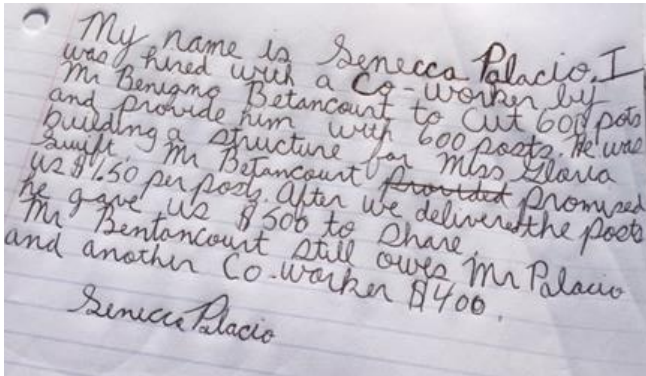 My name is Senecca Palacio. I
was hired with a Co-worker by
Mr Benigno Betancourt to Cut 600 pots
and provide him with 600 posts. He was
building a structure for Miss Gloria
Swift. Mr Betancourt provided promised
us $1.50 per posts. After we delivered the posts
he gave us $500 to share.
Mr Bentancourt still owes Mr Palacio
and another Co-worker $400.
Senecca Palacio